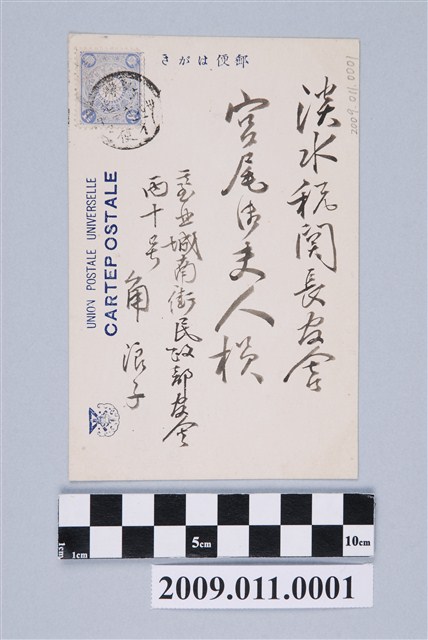 郵便はがき
淡水税関長官舎
宮尾御夫人様
臺北城南街民政部官舎
丙十号
角 浪子
UNION POSTALE UNIVERSELLE
CARTE POSTALE
2009.011.0001
1cm
1cm
5cm
10cm
2009.011.0001